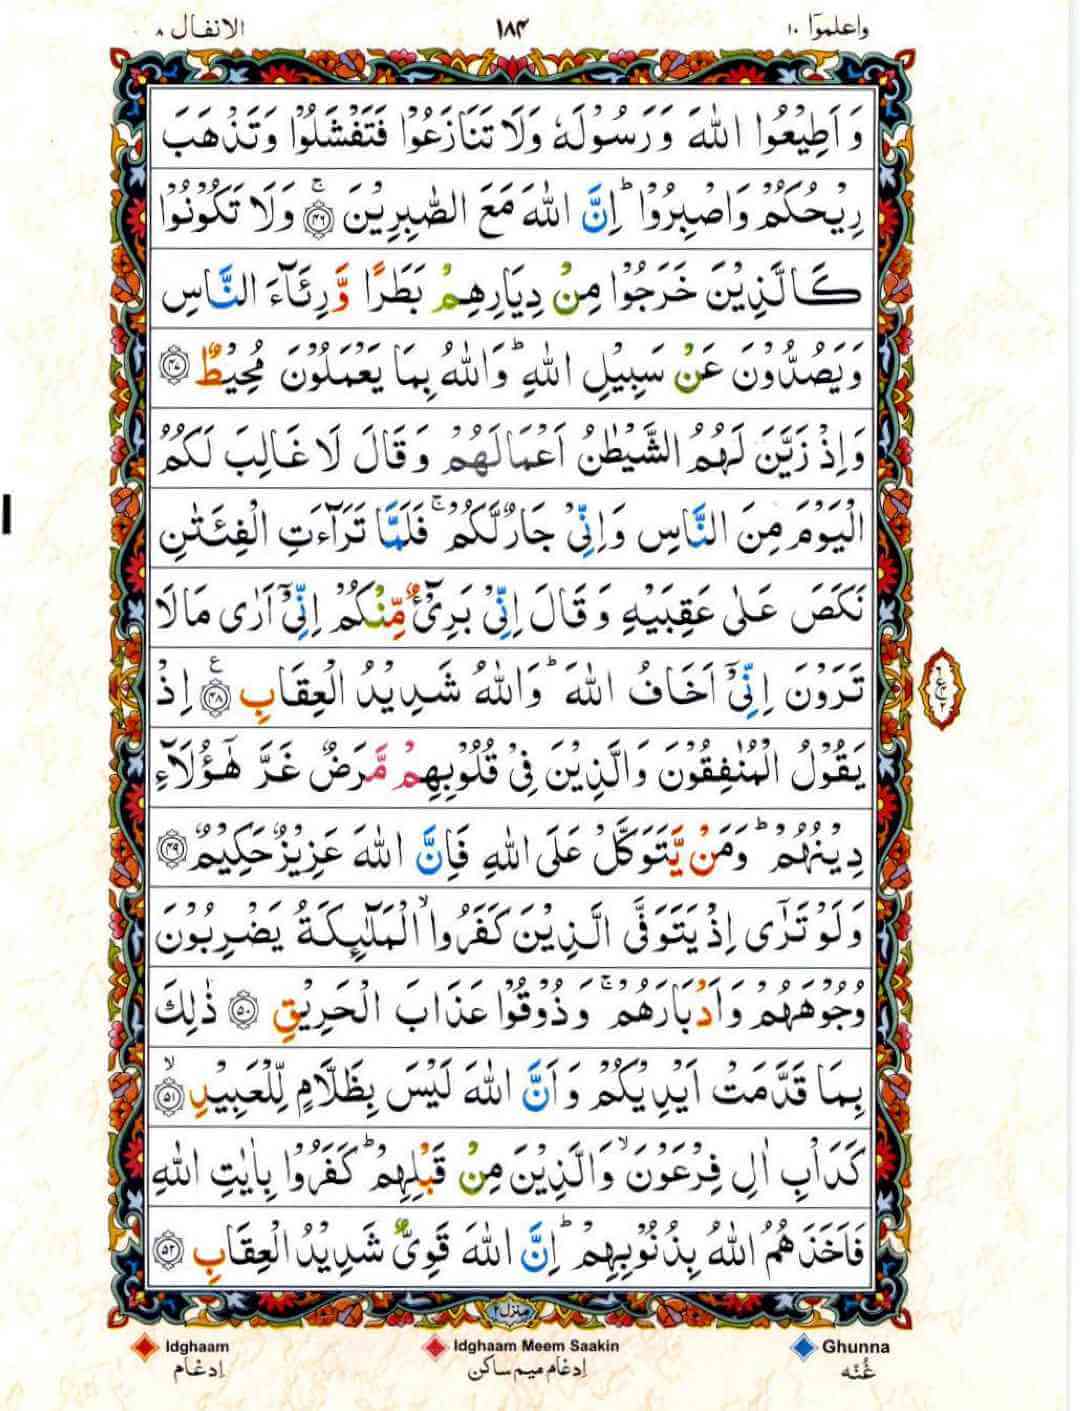 واعلموۤا ١٠ ١٨٤ الانفال ٨
وَاَطِيْعُوا اللّٰهَ وَرَسُوْلَهٗ وَلَا تَنَازَعُوْا فَتَفْشَلُوْا وَتَذْهَبَ
رِيْحُكُمْ وَاصْبِرُوْا ؕ اِنَّ اللّٰهَ مَعَ الصّٰبِرِيْنَ ۚ ﴿٤٦﴾ وَلَا تَكُوْنُوْا
كَالَّذِيْنَ خَرَجُوْا مِنْ دِيَارِهِمْ بَطَرًا وَّرِئَآءَ النَّاسِ
وَيَصُدُّوْنَ عَنْ سَبِيْلِ اللّٰهِ ؕ وَاللّٰهُ بِمَا يَعْمَلُوْنَ مُحِيْطٌ ﴿٤٧﴾
وَاِذْ زَيَّنَ لَهُمُ الشَّيْطٰنُ اَعْمَالَهُمْ وَقَالَ لَا غَالِبَ لَكُمُ
الْيَوْمَ مِنَ النَّاسِ وَاِنِّىْ جَارٌ لَّكُمْ ۚ فَلَمَّا تَرَآءَتِ الْفِئَتٰنِ
نَكَصَ عَلٰى عَقِبَيْهِ وَقَالَ اِنِّىْ بَرِىْٓءٌ مِّنْكُمْ اِنِّىْۤ اَرٰى مَا لَا
تَرَوْنَ اِنِّىْۤ اَخَافُ اللّٰهَ ؕ وَاللّٰهُ شَدِيْدُ الْعِقَابِ ﴿٤٨﴾ ع اِذْ
يَقُوْلُ الْمُنٰفِقُوْنَ وَالَّذِيْنَ فِىْ قُلُوْبِهِمْ مَّرَضٌ غَرَّ هٰٓؤُلَآءِ
دِيْنُهُمْ ؕ وَمَنْ يَّتَوَكَّلْ عَلَى اللّٰهِ فَاِنَّ اللّٰهَ عَزِيْزٌ حَكِيْمٌ ﴿٤٩﴾
وَلَوْ تَرٰٓى اِذْ يَتَوَفَّى الَّذِيْنَ كَفَرُوا ۙ الْمَلٰٓئِكَةُ يَضْرِبُوْنَ
وُجُوْهَهُمْ وَاَدْبَارَهُمْ ۚ وَذُوْقُوْا عَذَابَ الْحَرِيْقِ ﴿٥٠﴾ ذٰلِكَ
بِمَا قَدَّمَتْ اَيْدِيْكُمْ وَاَنَّ اللّٰهَ لَيْسَ بِظَلَّامٍ لِّلْعَبِيْدِ ۙ ﴿٥١﴾
كَدَاْبِ اٰلِ فِرْعَوْنَ ۙ وَالَّذِيْنَ مِنْ قَبْلِهِمْ ؕ كَفَرُوْا بِاٰيٰتِ اللّٰهِ
فَاَخَذَهُمُ اللّٰهُ بِذُنُوْبِهِمْ ؕ اِنَّ اللّٰهَ قَوِىٌّ شَدِيْدُ الْعِقَابِ ﴿٥٢﴾
منزل ٢
Idghaam Idghaam Meem Saakin Ghunna
اِدغام اِدغام میم ساکن غُنّه